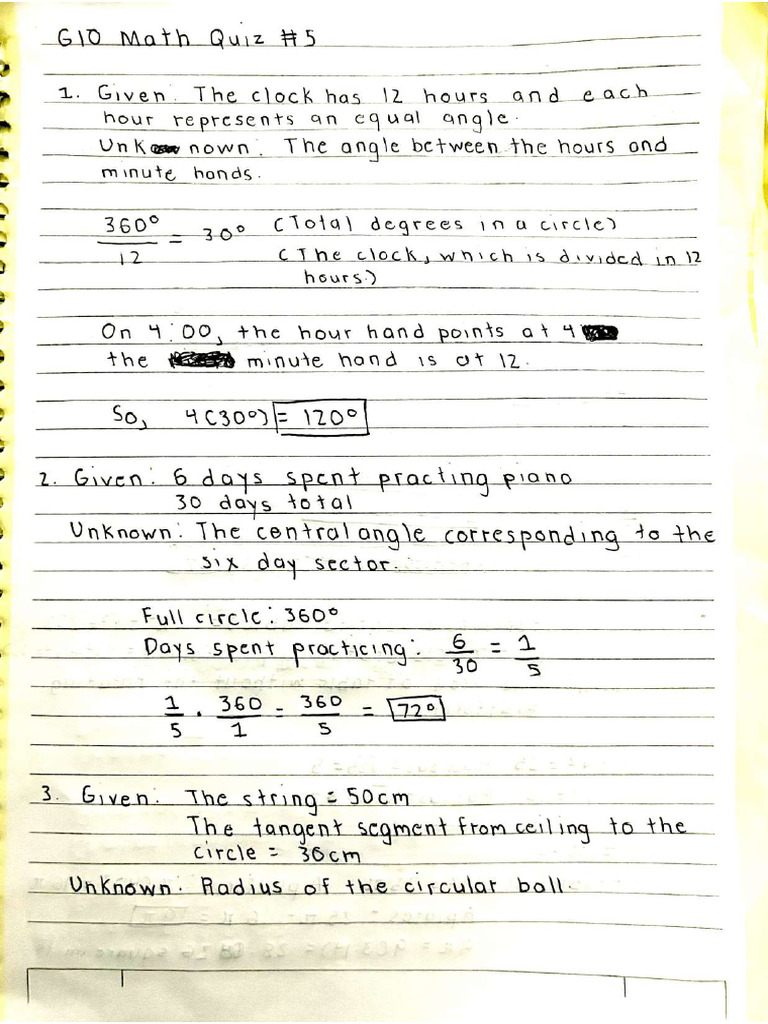 G10 Math Quiz #5
1. Given: The clock has 12 hours and each
hour represents an equal angle.
Unknown: The angle between the hours and
minute hands.
360° / 12 = 30° (Total degrees in a circle)
(The clock, which is divided in 12
hours.)
On 4:00, the hour hand points at 4
the minute hand is at 12.
So, 4(30°) = 120°
2. Given: 6 days spent practing piano
30 days total
Unknown: The central angle corresponding to the
six day sector.
Full circle: 360°
Days spent practicing: 6/30 = 1/5
1/5 · 360/1 = 360/5 = 72°
3. Given: The string = 50cm
The tangent segment from ceiling to the
circle = 30cm
Unknown: Radius of the circular ball.